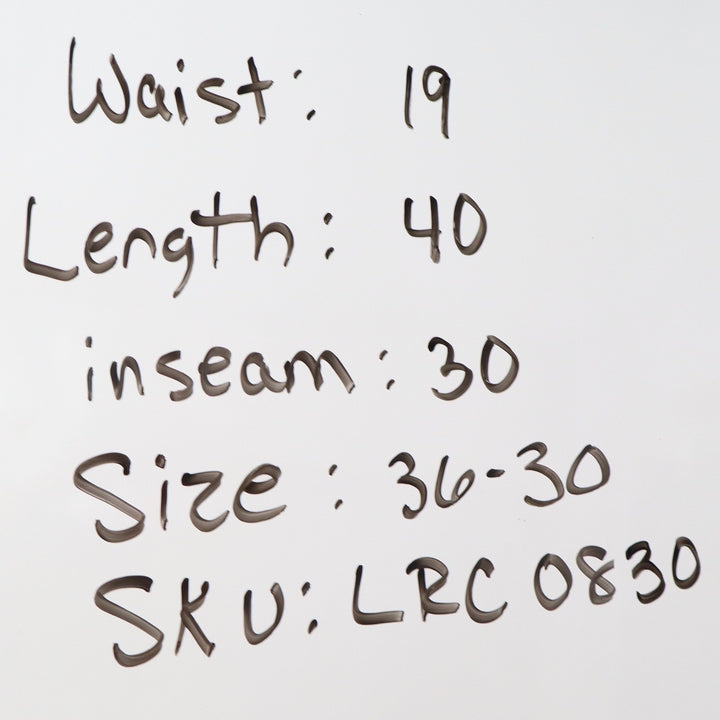 Waist: 19
Length: 40
inseam: 30
Size: 36-30
SKU: LRC 0830